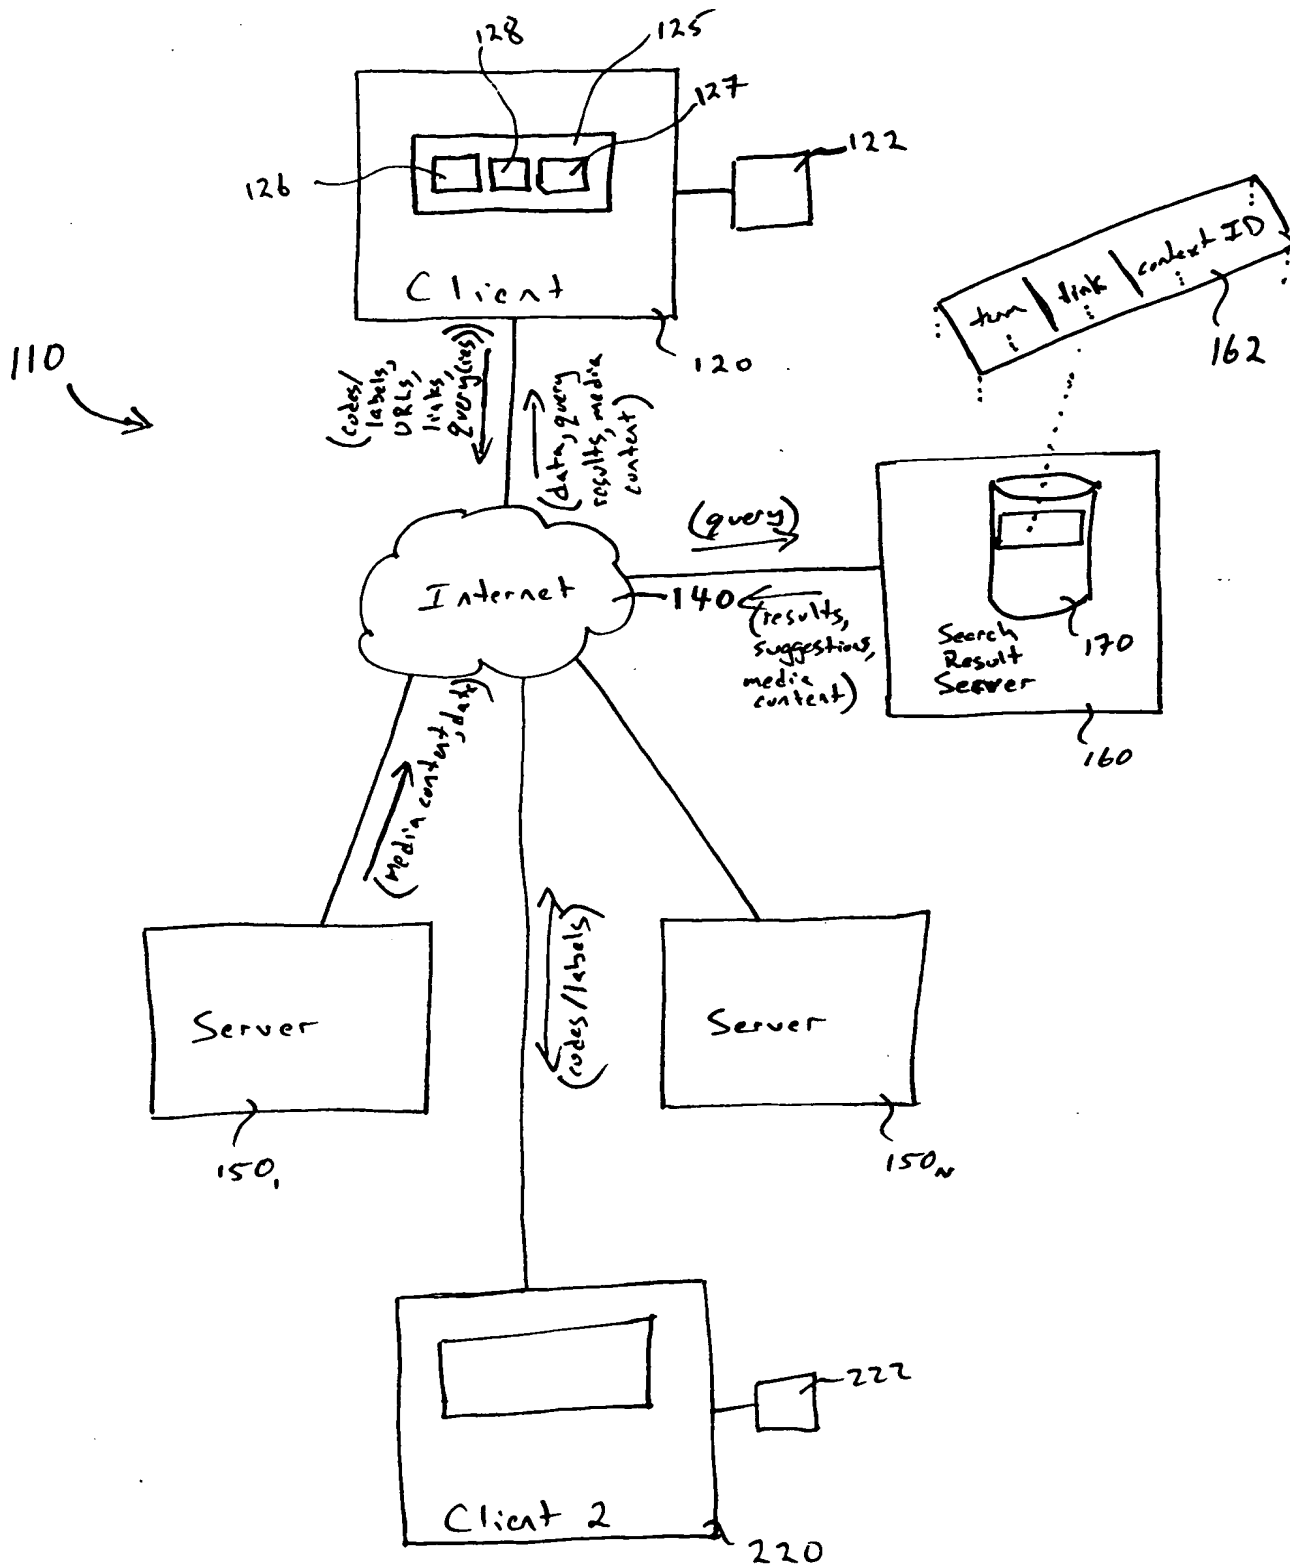 128
125
127
126
122
Client
120
110
(codes/
labels,
URLs,
links,
query(ies))
(data, query
results, media
content)
term
link
context ID
162
(query)
Internet
140
(results,
suggestions,
media
content)
Search
Result
Server
170
160
(Media content, data)
(codes/labels)
Server
150₁
Server
150ₙ
222
Client 2
220